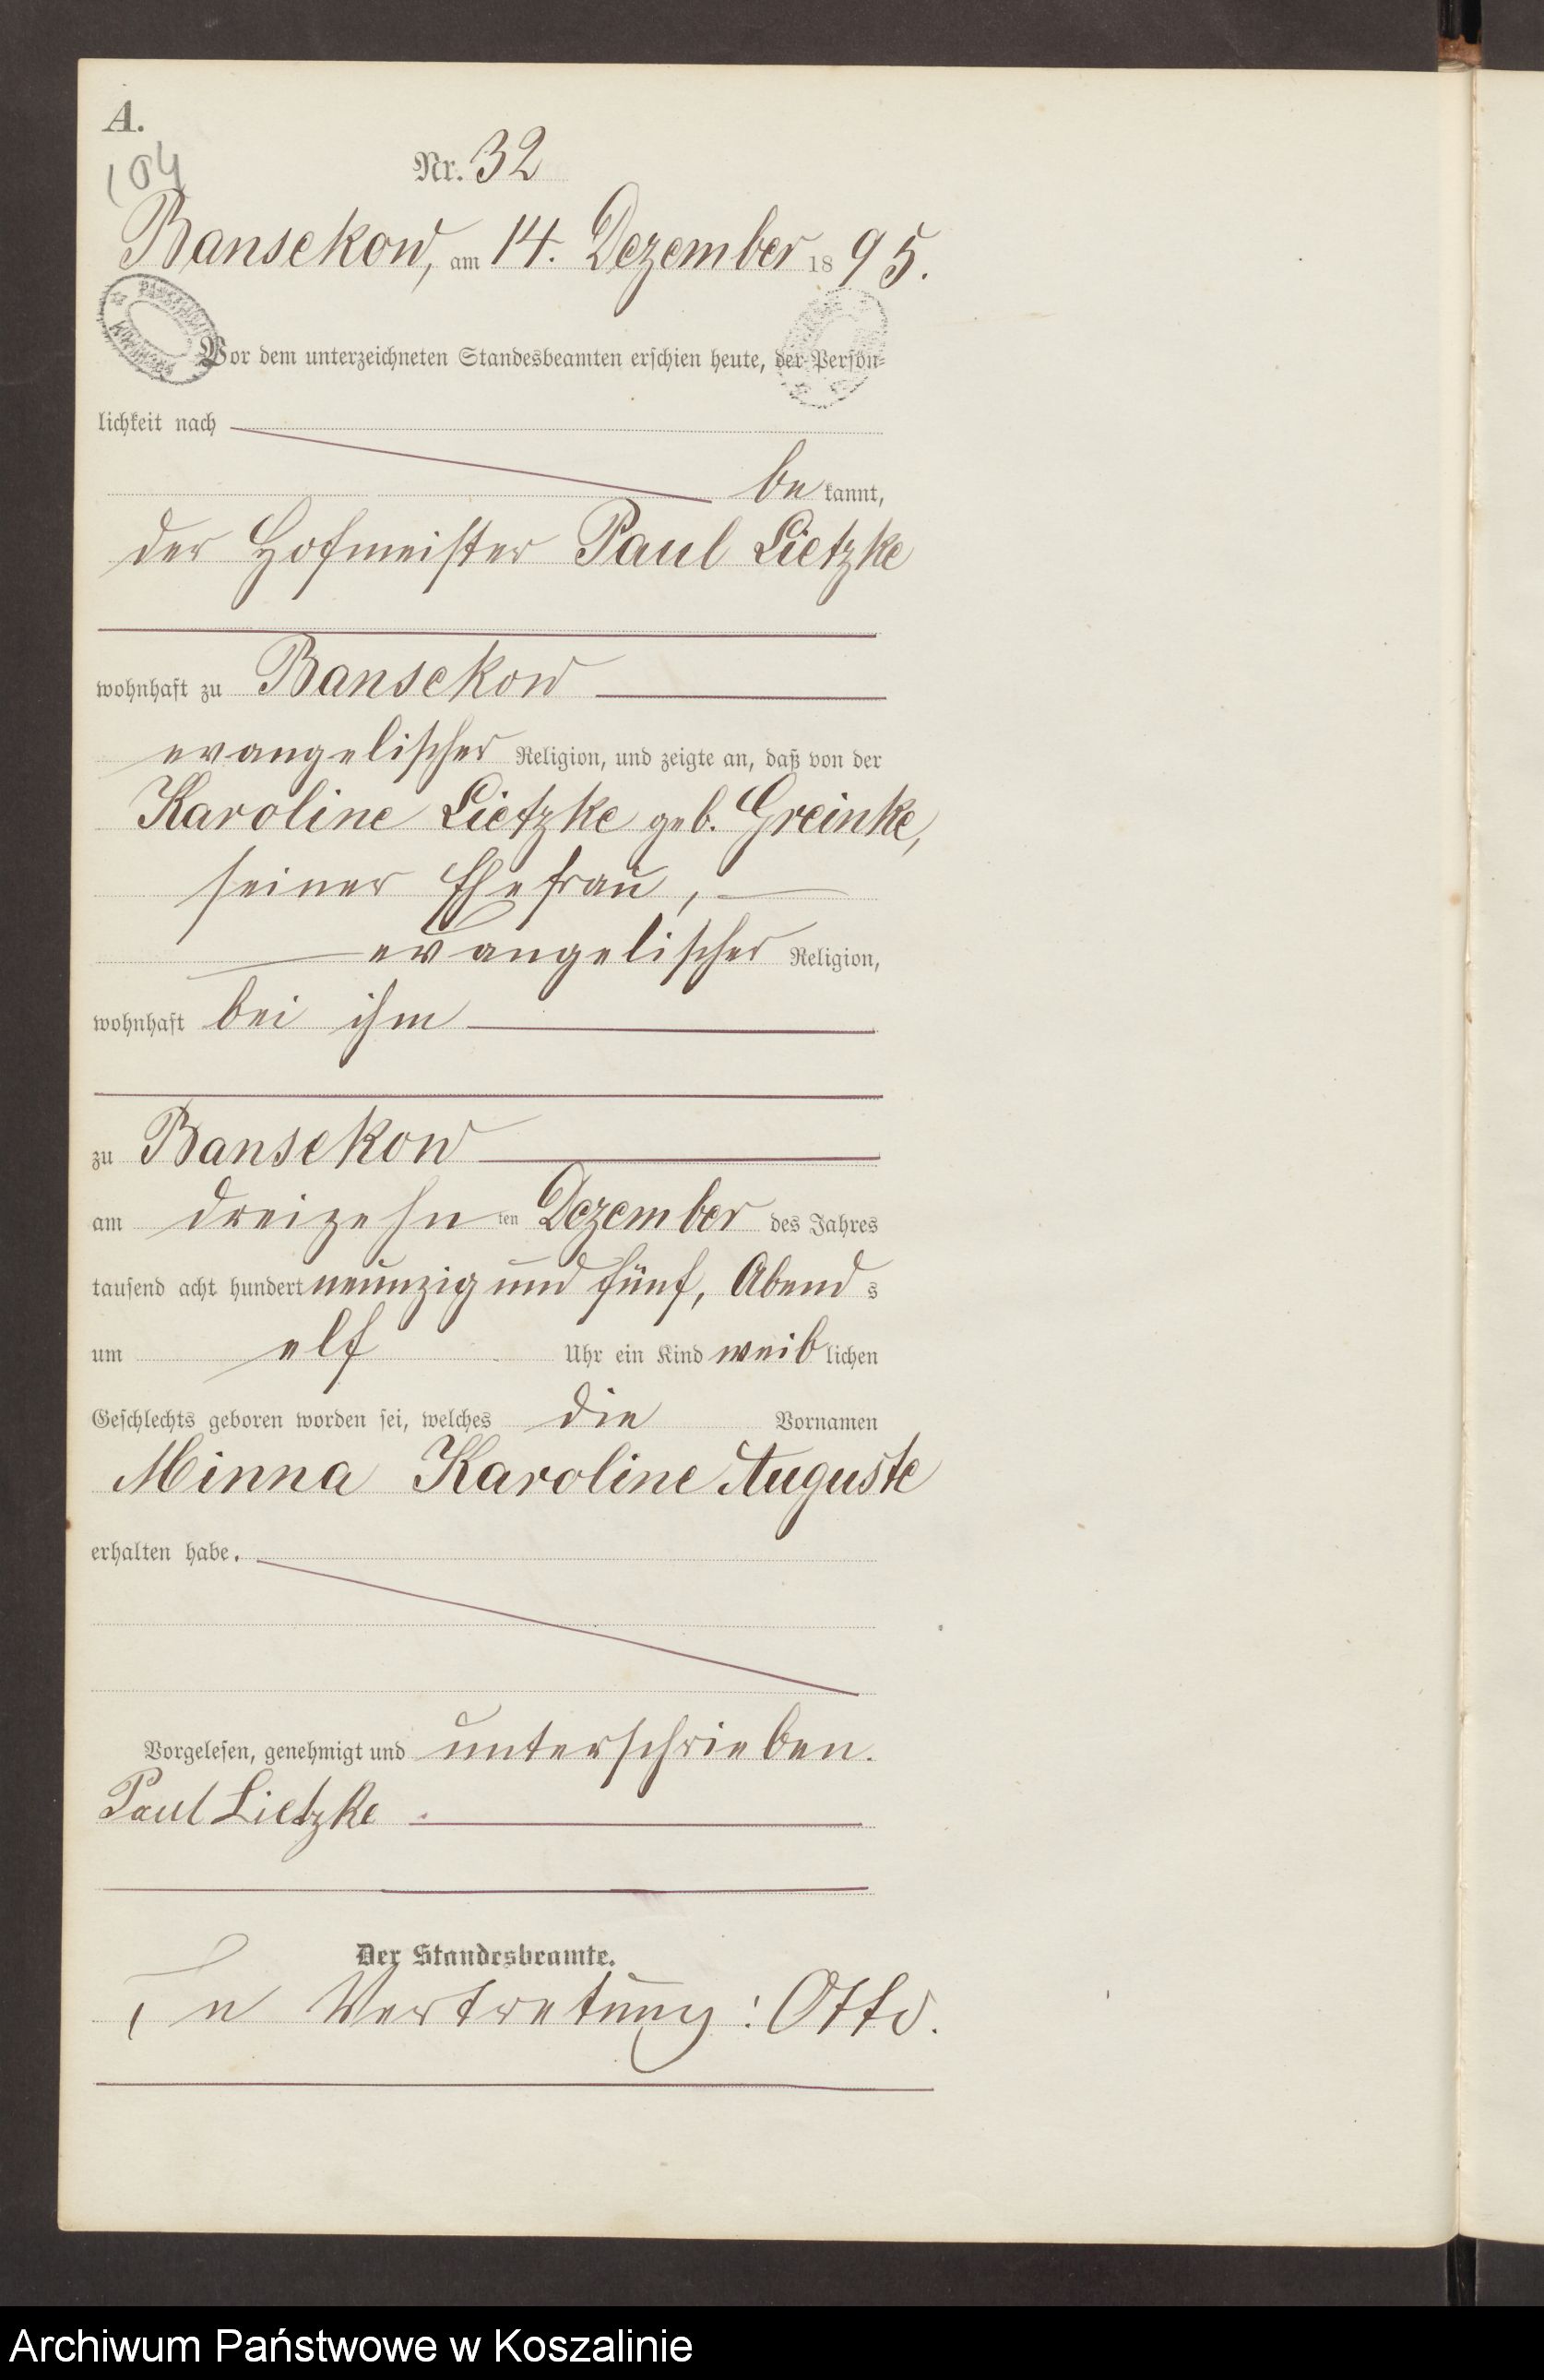 A.
104
Nr. 32
Bansekow, am 14. Dezember 1895.
Vor dem unterzeichneten Standesbeamten erschien heute, der Persön-
lichkeit nach
bekannt,
der Hofmeister Paul Lietzke
wohnhaft zu Bansekow
evangelischer Religion, und zeigte an, daß von der
Karoline Lietzke geb. Greinke,
seiner Ehefrau,
evangelischer Religion,
wohnhaft bei ihm
zu Bansekow
am dreizehnten Dezember des Jahres
tausend acht hundert neunzig und fünf, Abends
um elf Uhr ein Kind weiblichen
Geschlechts geboren worden sei, welches die Vornamen
Minna Karoline Auguste
erhalten habe.
Vorgelesen, genehmigt und unterschrieben.
Paul Lietzke
Der Standesbeamte.
In Vertretung: Otto.
Archiwum Państwowe w Koszalinie